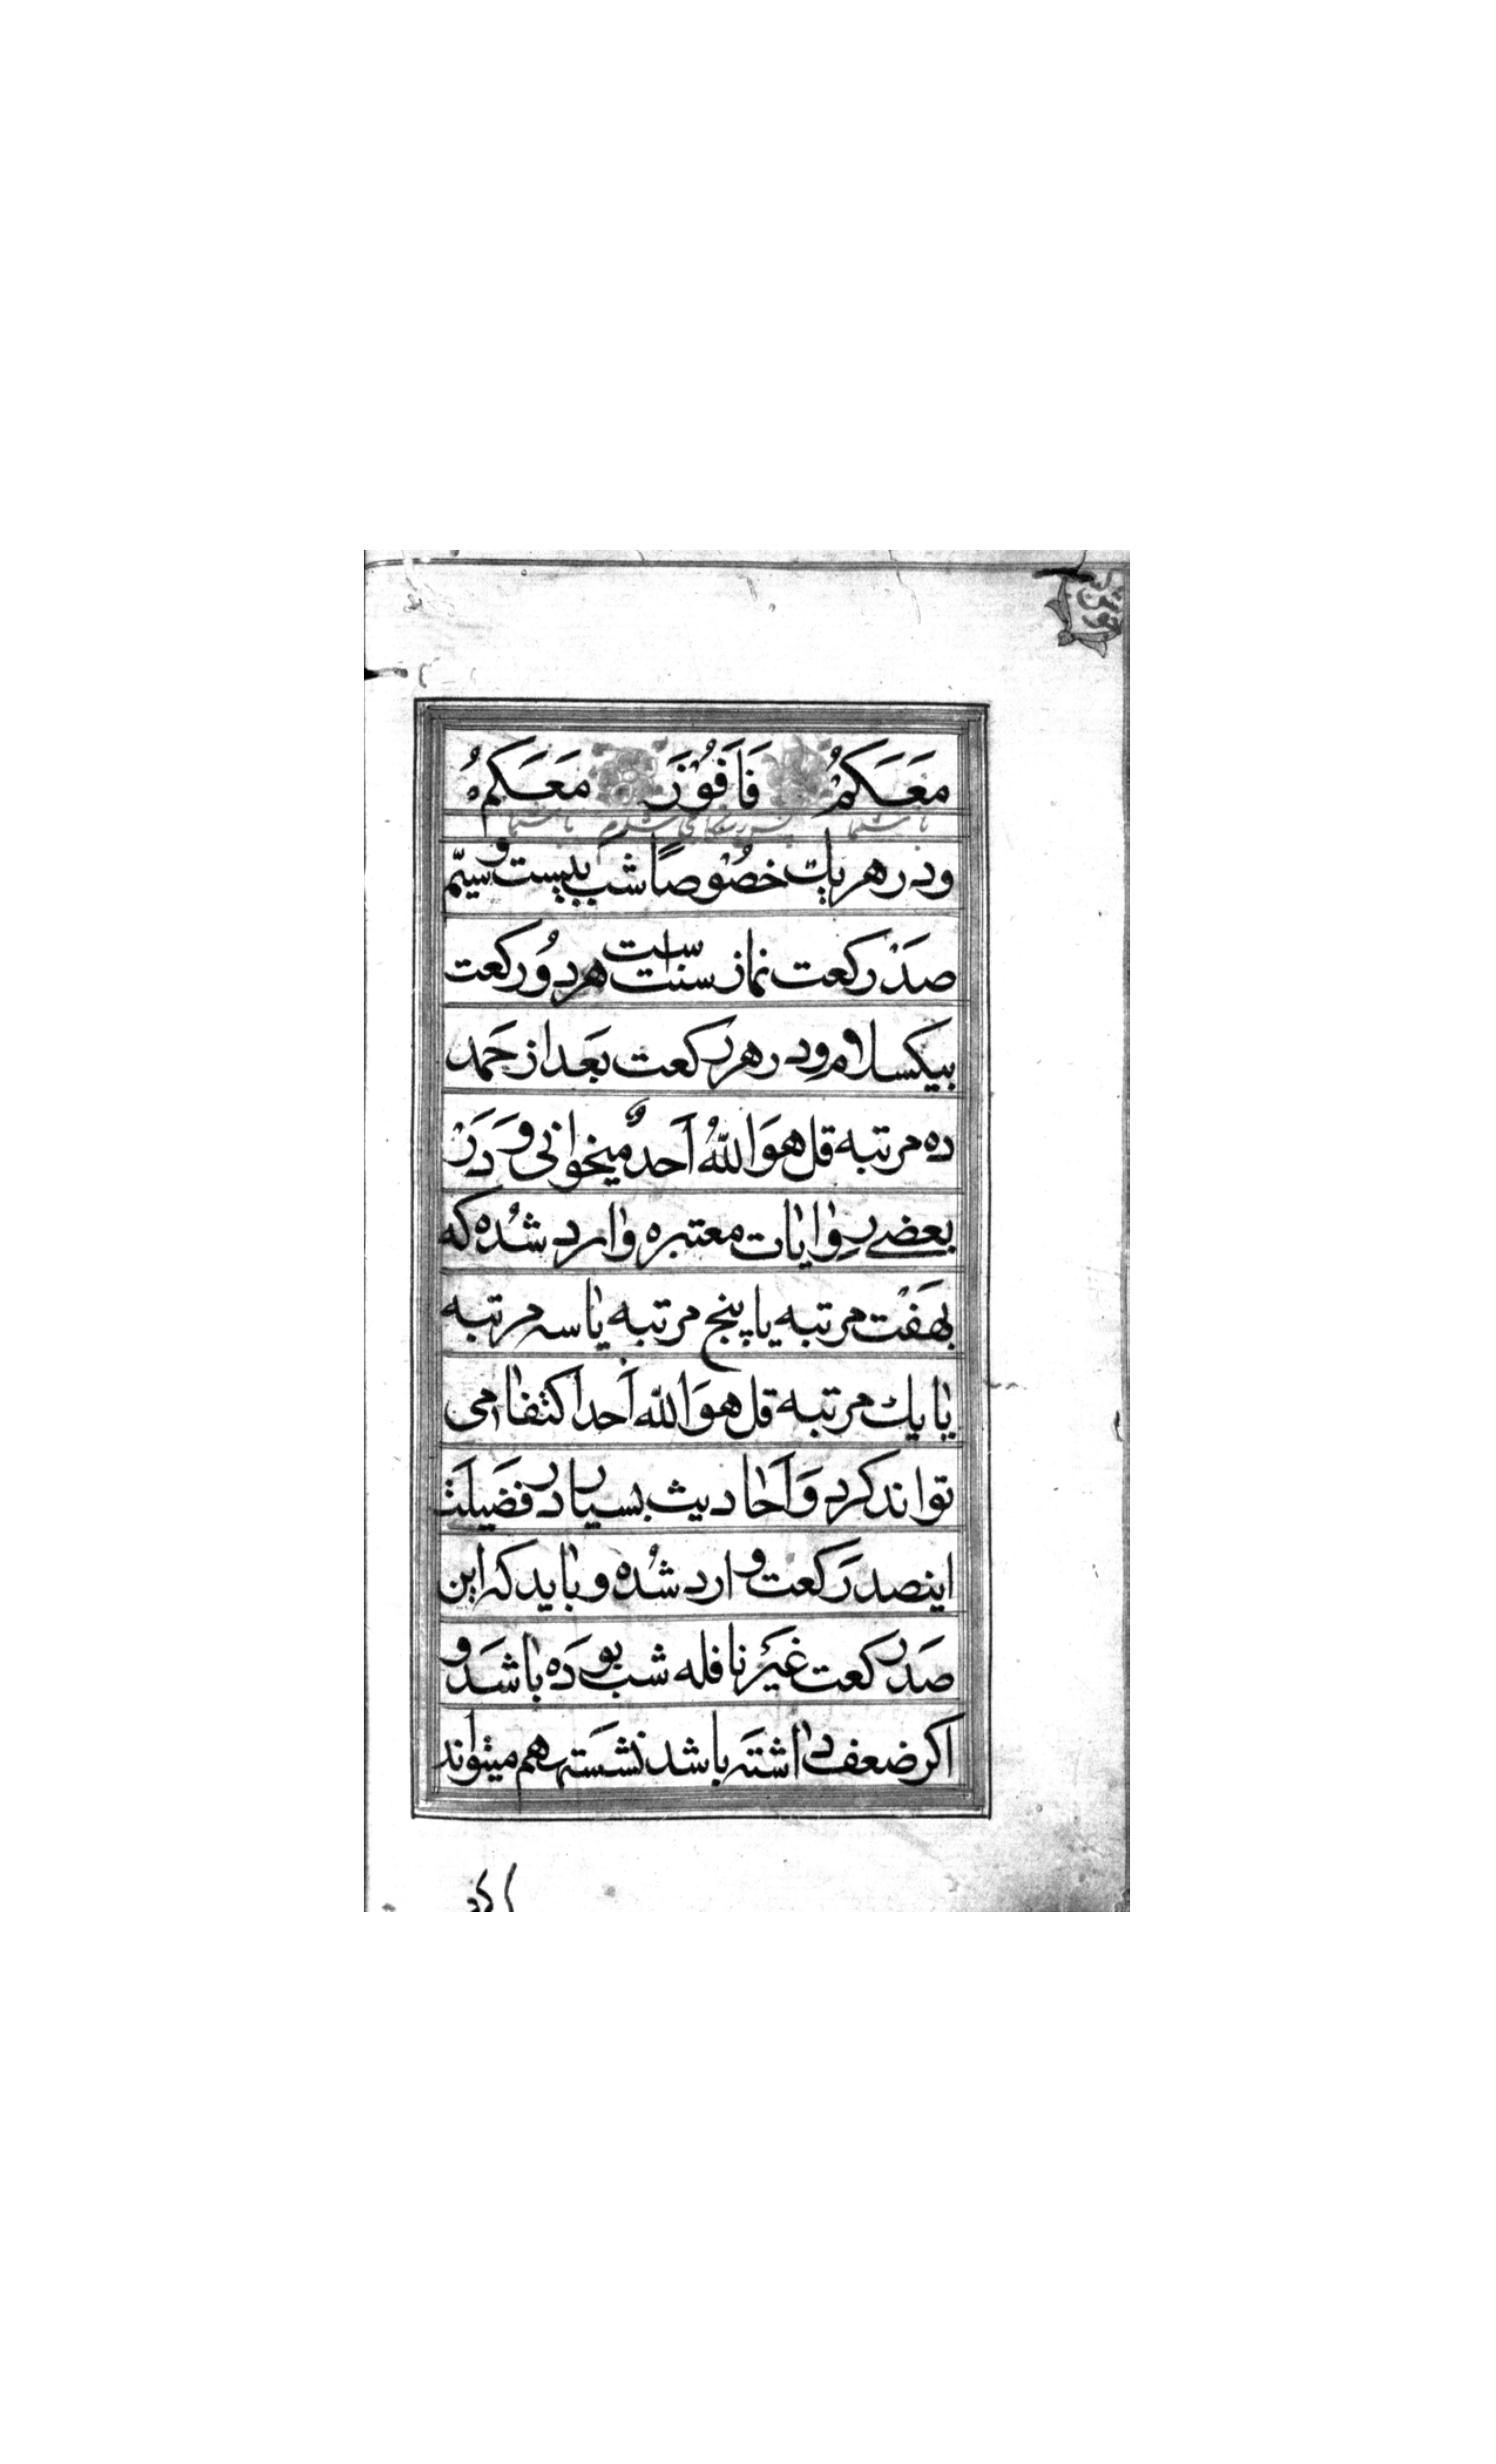 مَعَكُمْ فَاَفُوْزَ مَعَكُمْ
با شما پس رستگار می شدم با شما
و در هر یك خصُوصاً شب بیست و سیّم
صَدْ رکعت نماز سنت است هر دُو رکعت
بیکسلام و در هر رکعت بعَد از حَمد
ده مرتبه قل هوَ اللّهُ اَحدٌ میخوانی وَ دَرْ
بعضے رِوٰایٰات معتبره وٰارد شدُه که
بهَفْت مرتبه یا پنج مرتبه یٰا سه مرتبه
یٰا یك مرتبه قل هوَ اللّه اَحد اکتفٰا می
تواند کرد وَ اَحٰادیث بسیٰار در فضَیلَت
اینصد رَکعت وارد شدُه و بٰاید که این
صَد رکعت غیَرْ نافله شب بودَه بٰاشَد و
اکر ضعف دٰاشتَه باشد نشَسته هم میتواند
کرد